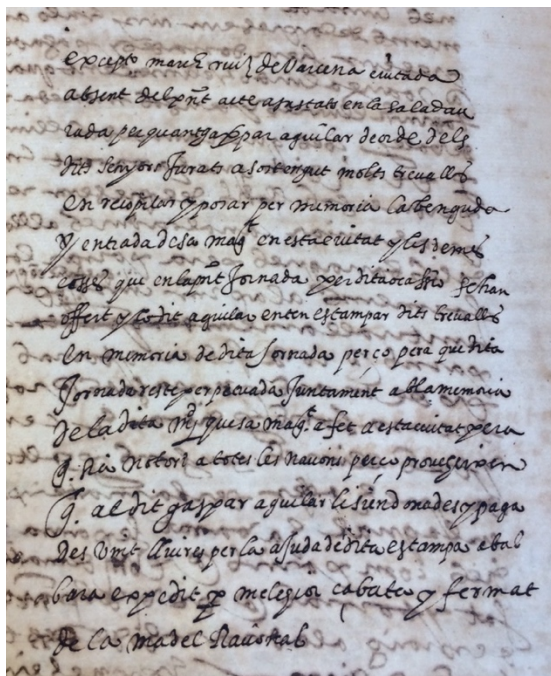 excepto march ruiz de barcena ciutada
absent del pnt acte ajustats en la sala dau
rada per quant gaspar aguilar de orde dels
dits senyors Jurats a sostengut molts treualls
en recopilar y posar per memoria la benguda
y entrada de sa magt en esta ciutat y les demes
coses que en la pnt Jornada per dita ocassio sehan
offert y lo dit aguilar enten estampar dits treualls
en memoria de dita Jornada perço pera que dita
Jornada reste perpetuada Juntament ab la memoria
de la dita que sa magt a fet a esta ciutat pera
q. sia notori a totes les nacions perço proueheixen
q. al dit gaspar aguilar li sien donades y paga
des vint lliures per la ajuda de dita estampa e bal
bara expedit per melcgior çabata y fermat
de la ma del Racional